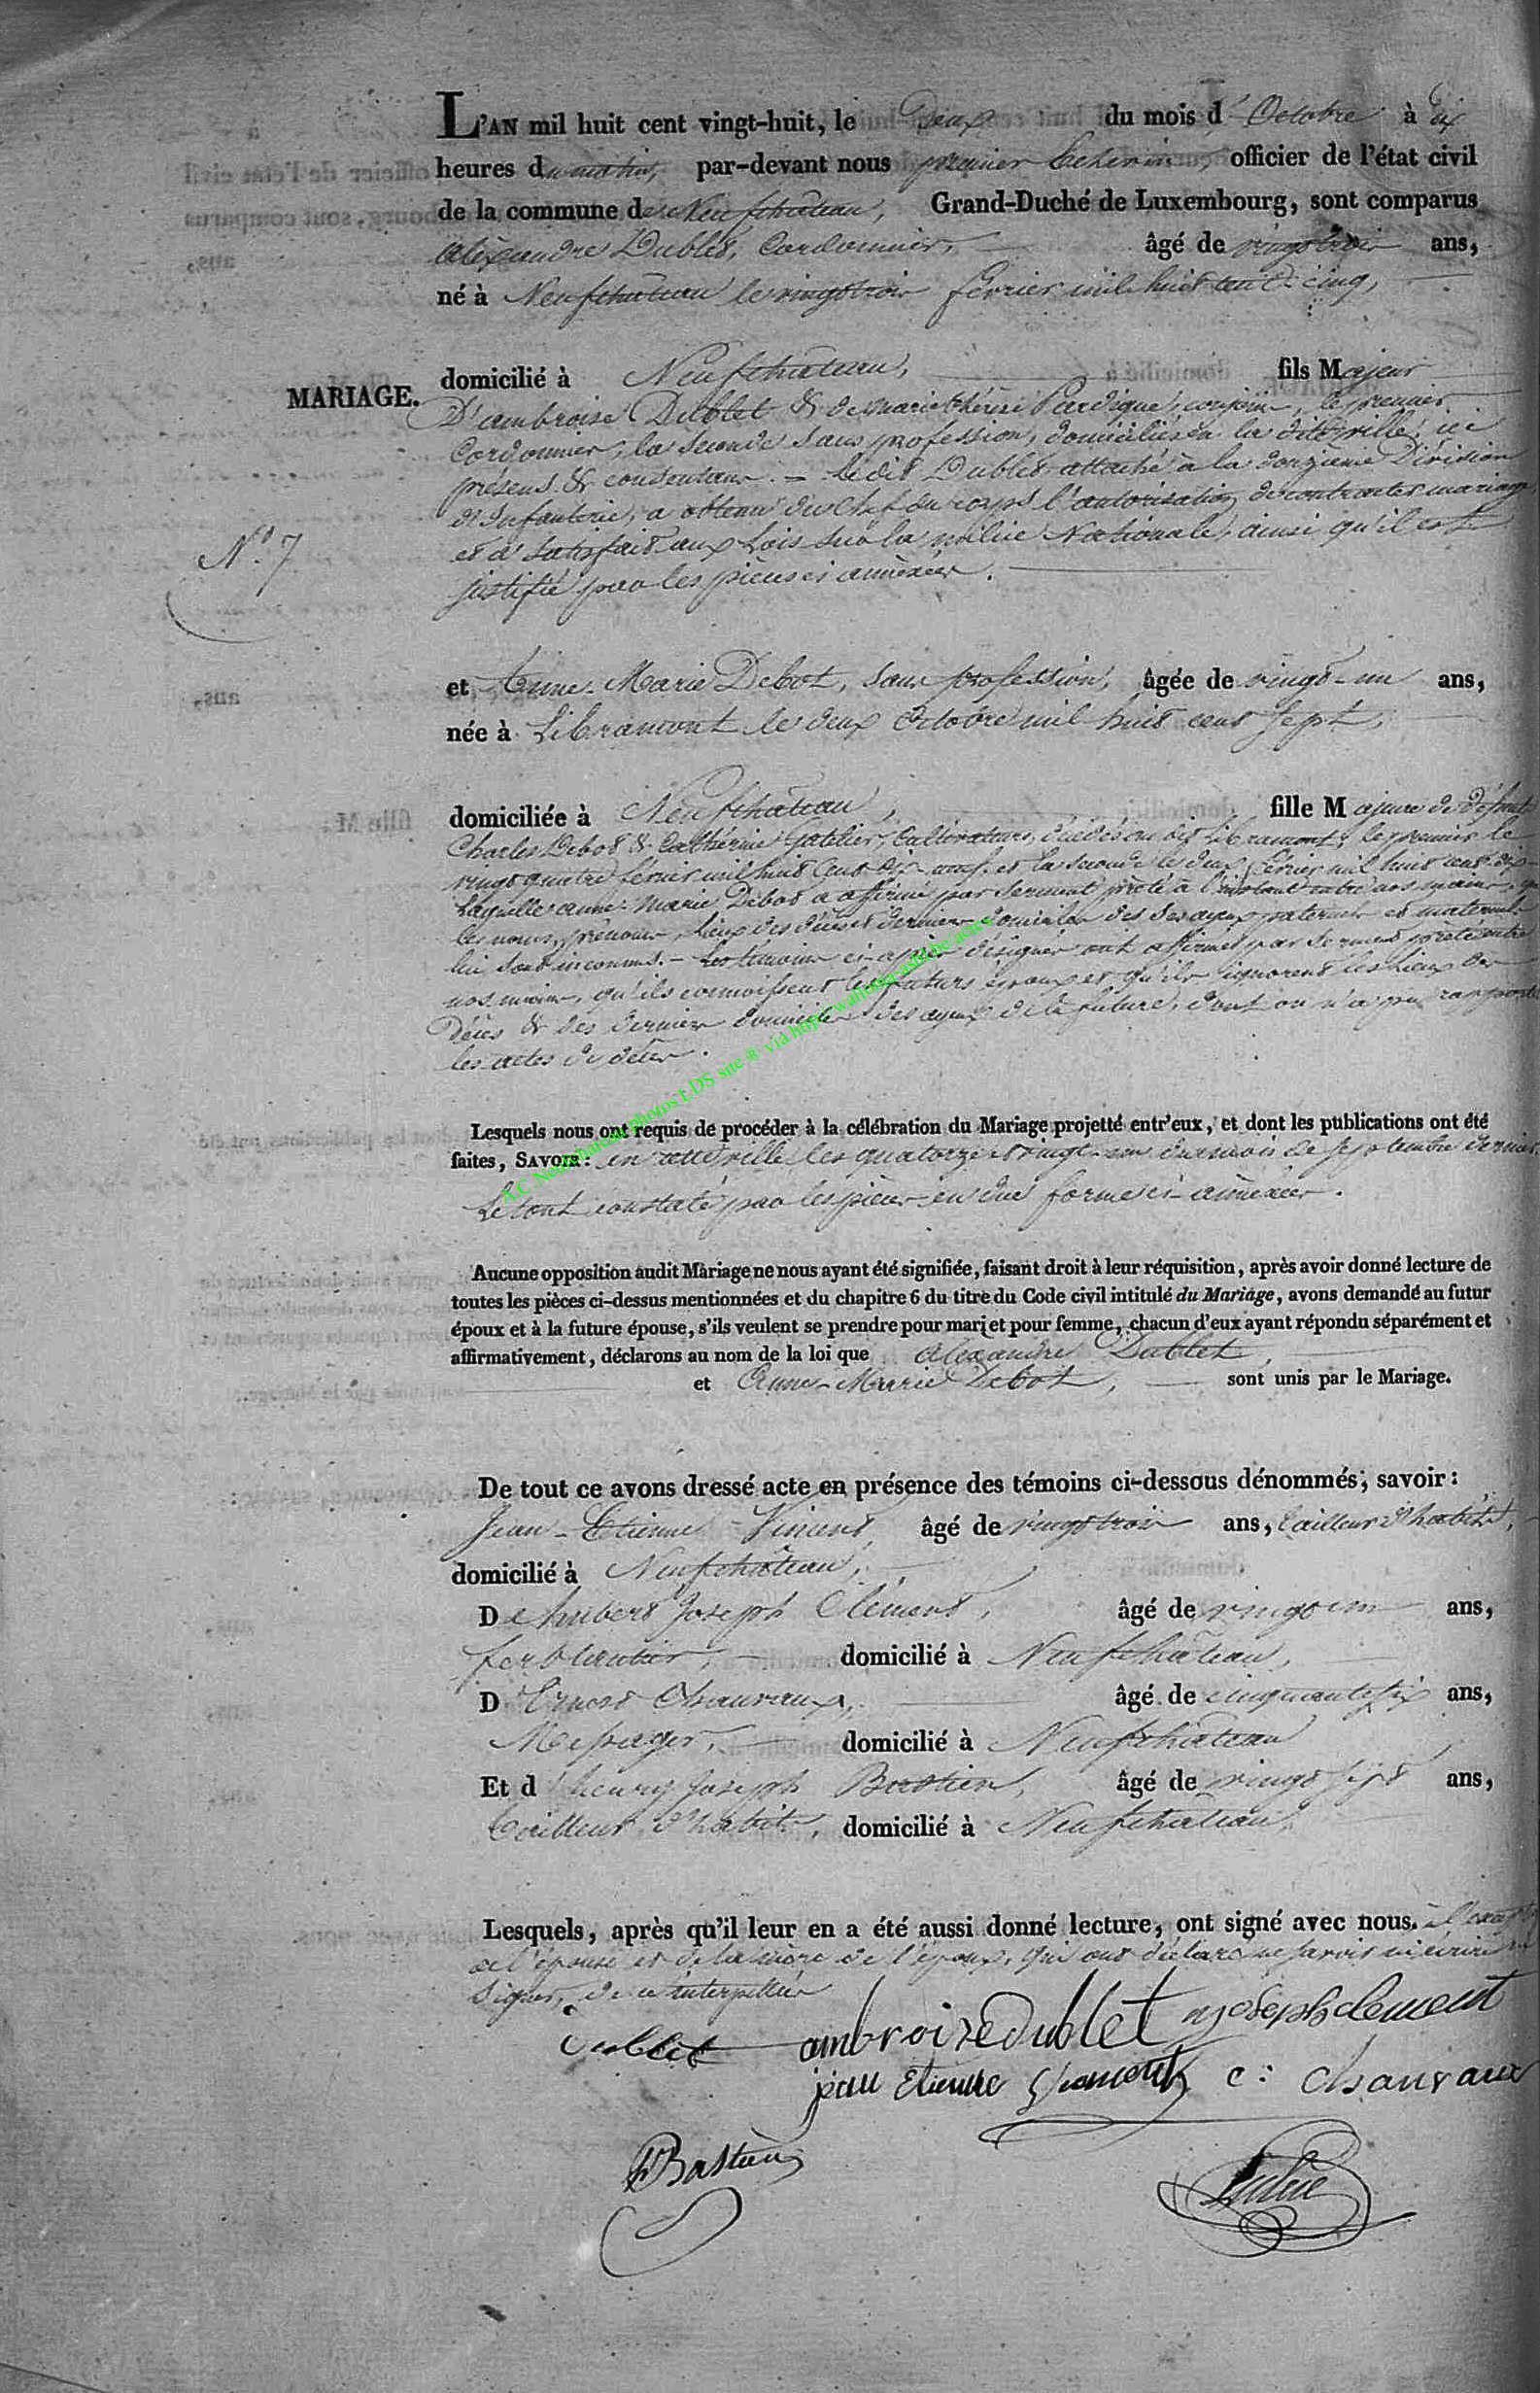 L'AN mil huit cent vingt-huit, le Deux du mois d'Octobre à dix
heures du matin, par-devant nous premier Echevin, officier de l'état civil
de la commune de Neufchâteau, Grand-Duché de Luxembourg, sont comparus
alexandre Dublet, Cordonnier, âgé de vingt trois ans,
né à Neufchâteau le vingt trois février mil huit cent cinq,
MARIAGE.
domicilié à Neufchâteau, fils Majeur
D'ambroise Dublet & de marie thérèse Pardique, conjoins, le premier
Cordonnier, la seconde sans profession, domiciliés en la dite ville, ici
présens & consentans. - Ledit Dublet attaché à la Division
d'Infanterie, a obtenu du Chef du corps l'autorisation de contracter mariage
et a satisfait aux Lois sur la milice Nationale, ainsi qu'il est
justifié par les pièces ci annexées.
N.º 7
et Anne-Marie Debot, sans profession, âgée de vingt-un ans,
née à Libramont le deux Octobre mil huit cent sept,
domiciliée à Neufchâteau, fille Majeure de défunts
Charles Debot & Cathérine Cultivateurs, décédés au dit Libramont, le premier le
vingt quatre février mil huit cent dix neuf et la seconde le deux février mil huit cent dix
Laquelle anne-Marie Debot a affirmé par serment prêté à l'instant entre nos mains, que
les noms, prénoms, lieux des décès et derniers domiciles des ses ayeux paternels et maternels
lui sont inconnus. - Les témoins ci-après désignés ont affirmé par serment prêté entre
nos mains, qu'ils connoissent les futurs époux et qu'ils ignorent les lieux des
Décès & des derniers domiciles des ayeux de la future, dont on n'a pu rapporter
les actes de décès.
A.C. Neufchâteau photos LDS snc ® via
Lesquels nous ont requis de procéder à la célébration du Mariage projetté entr'eux, et dont les publications ont été
faites, SAVOIR: en cette ville les quatorze et vingt-un du mois de septembre dernier.
Le tout constaté par les pièces en due forme ci-annexées.
Aucune opposition audit Mariage ne nous ayant été signifiée, faisant droit à leur réquisition, après avoir donné lecture de
toutes les pièces ci-dessus mentionnées et du chapitre 6 du titre du Code civil intitulé du Mariage, avons demandé au futur
époux et à la future épouse, s'ils veulent se prendre pour mari et pour femme, chacun d'eux ayant répondu séparément et
affirmativement, déclarons au nom de la loi que alexandre Dublet,
et Anne-Marie Debot, sont unis par le Mariage.
De tout ce avons dressé acte en présence des témoins ci-dessous dénommés; savoir:
Jean-Etienne âgé de vingt trois ans, tailleur d'habits,
domicilié à Neufchâteau,
De hubert Joseph Clément, âgé de vingt un ans,
ferblantier, domicilié à Neufchâteau,
D' Chauvaux, âgé de cinquante six ans,
Messager, domicilié à Neufchâteau
Et d'henry Joseph Bastien, âgé de vingt sept ans,
tailleur d'habits, domicilié à Neufchâteau,
Lesquels, après qu'il leur en a été aussi donné lecture, ont signé avec nous. à l'exception
de l'épouse et de la mère de l'époux, qui ont déclaré ne savoir ni écrire ni
signer, de ce interpellées
Dublet ambroise dublet joseph clement
jean Etienne e: chauvaux
Bastien